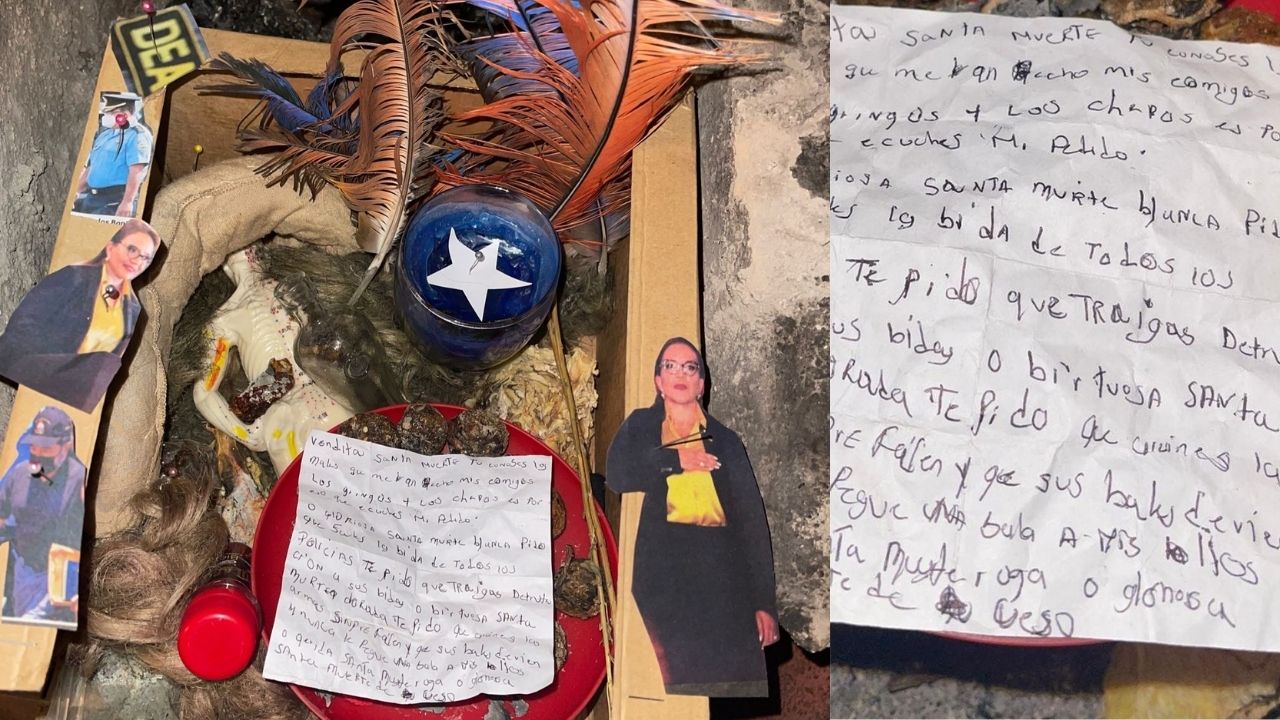 DEA
vendita SANTA MUERTE TU CONOSES los
males qu me han echo mis comigos
LOS gringos y LOS CHAPOS es POR
eso te ecuches Mi Pedido.
O GIORIOSA SANTA MURTE blUNCA Pido
que Seales la bida de TODOS IOS
POLICIAS TE pido que TRAIgas Detru
a sus biday o birtuosA SANta
MURTE dORada TE Pido que quines las
armas siempre fallen y qe sus balas devien
y nunca le Pegue UNA bala A Mis
O SANta Muerte roga o glonosa
SANta MUERTE de ueso
ta SANTA MUERTE TU CONOSES l
qu me han echo mis comigos
gringos y LOS CHAPOS es Po
ecuches Mi Pedido.
RIOSA SANTA MURTE blUNCA Pid
les la bida de TODOS IOS
TE pido que TRAIgas Detru
us biday o birtuosA SANta
dORada TE Pido que quines la
PRE fallen y qe sus balas devien
Pegue UNA bala A Mis
Ta Muerte roga o glonosa
Te de ueso